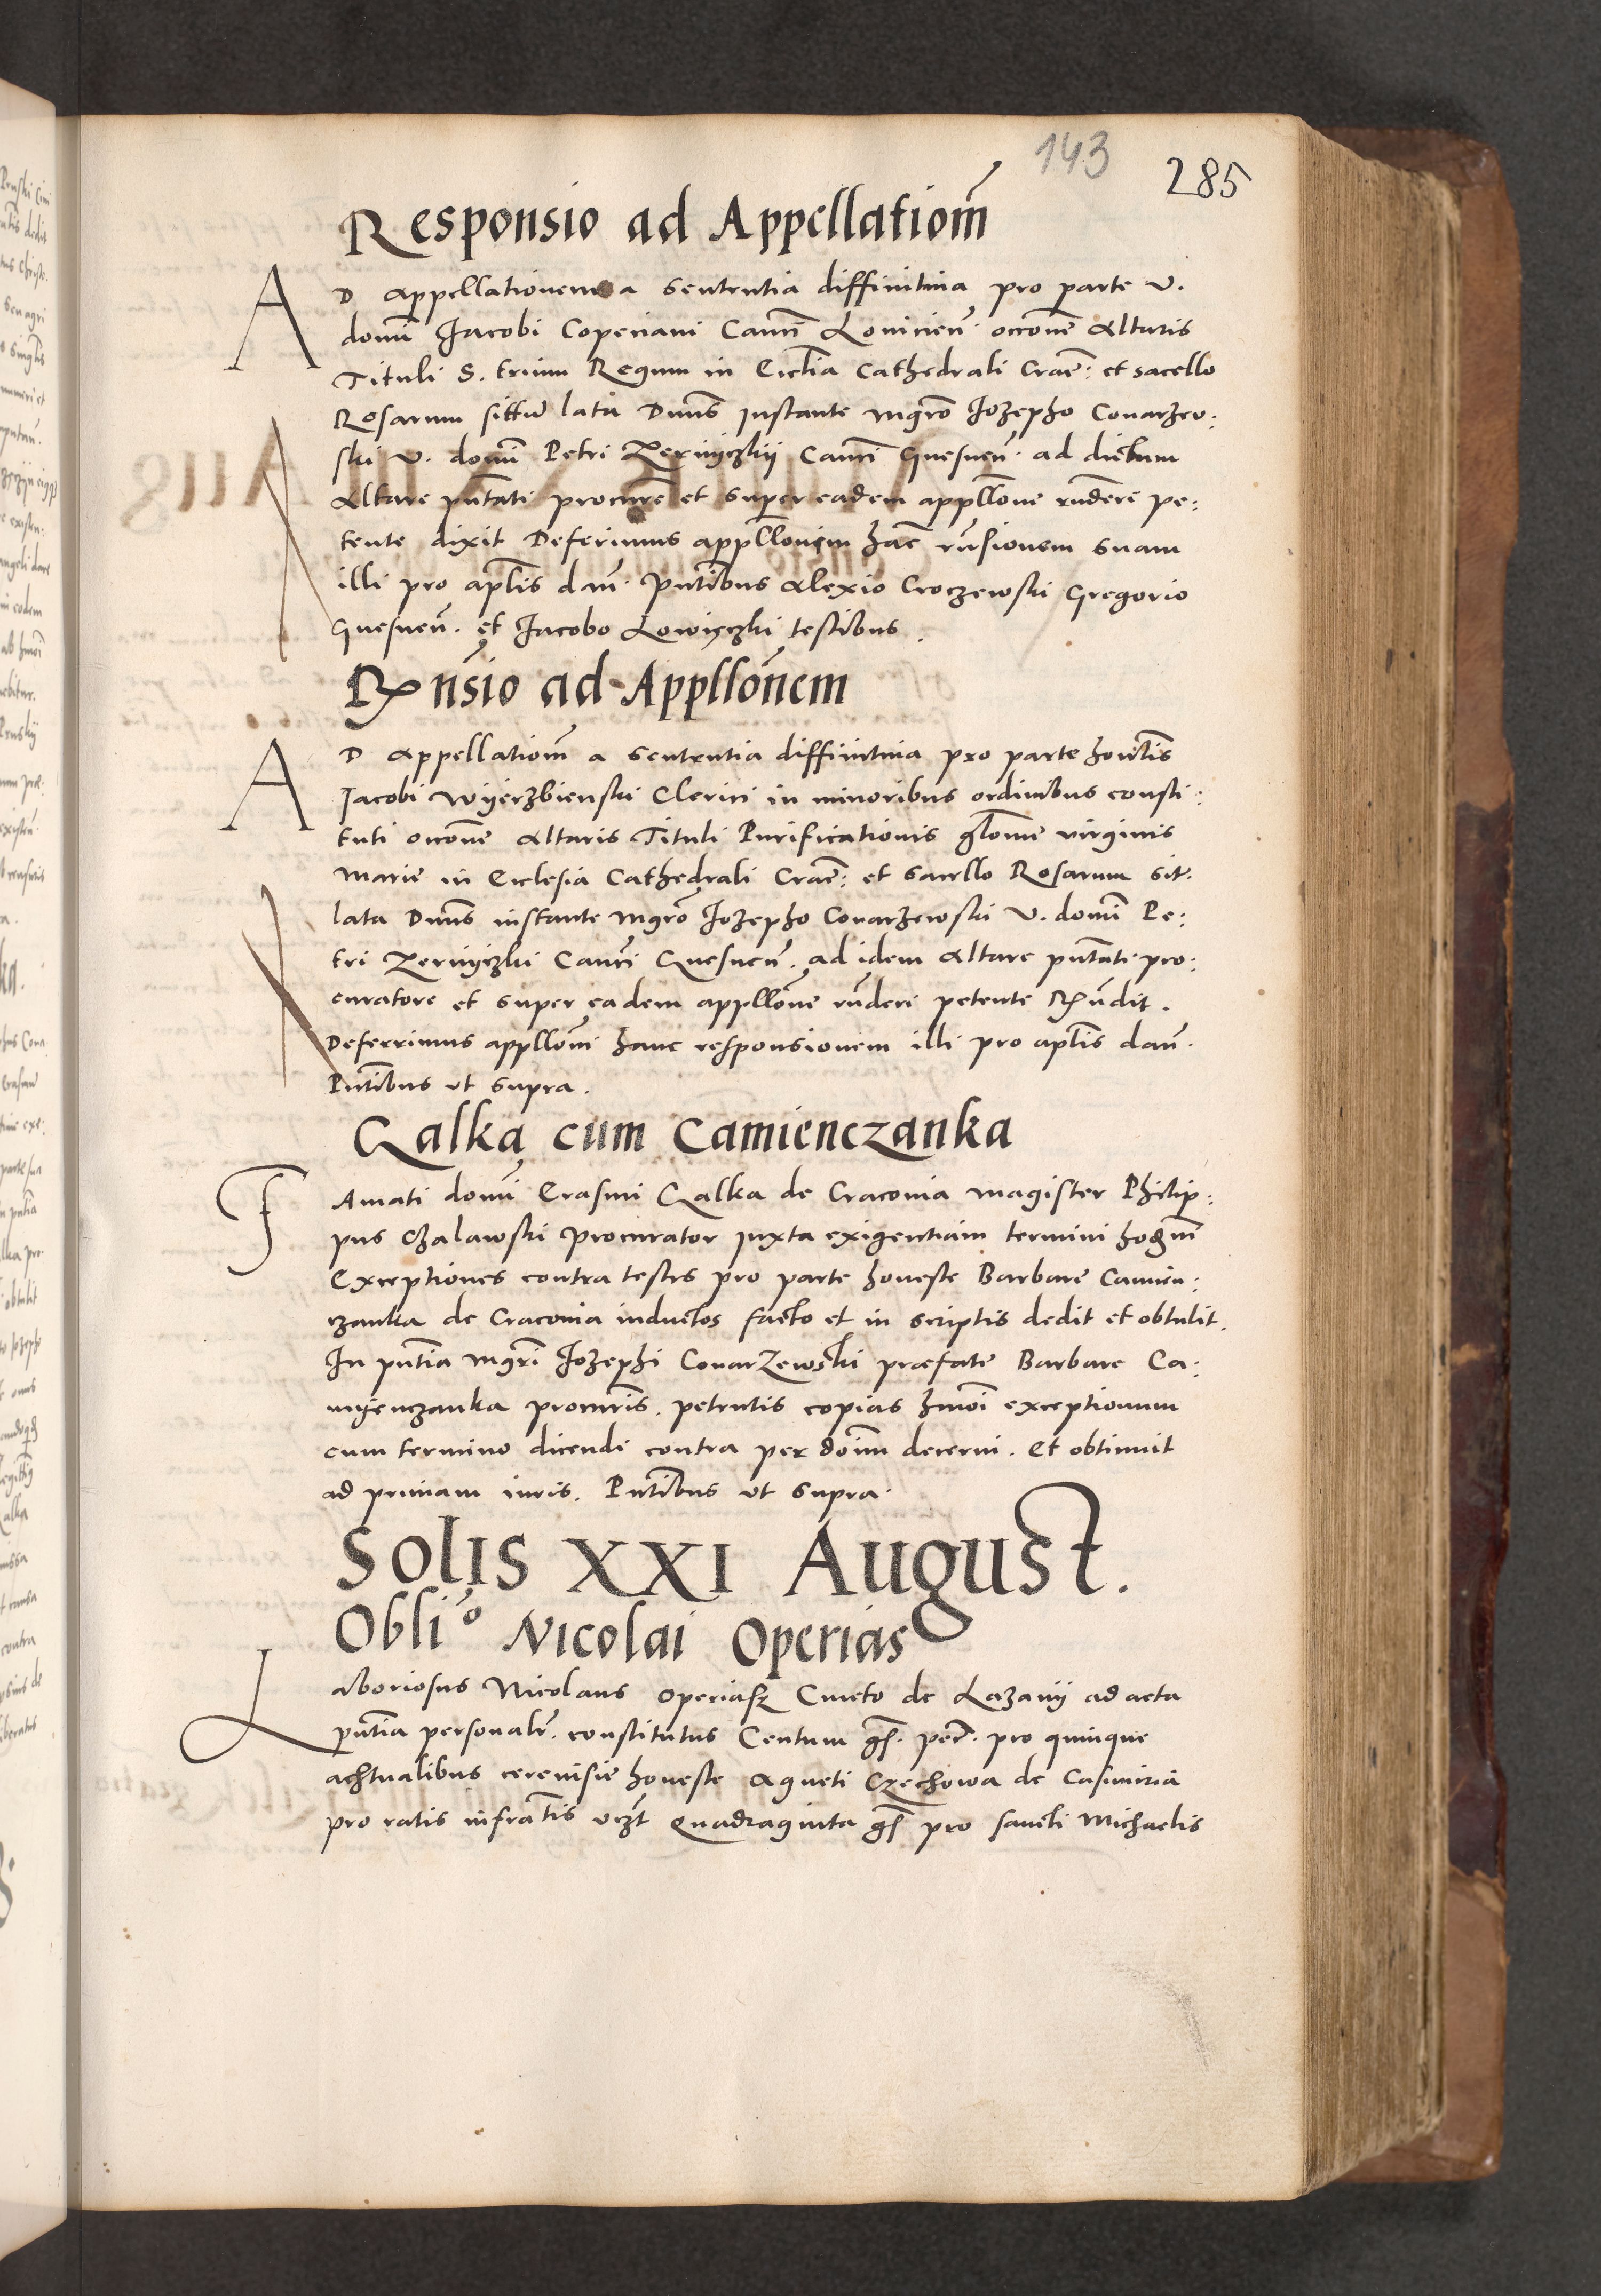 143 285
Responsio ad Appellatiom̃
AD appellationem a sententia diffinitiva pro parte V.
domi Jacobi Copeciani Canci Loviciēn occone Altaris
Tituli S. trium Regum in Ecclia Cathedrali Crac: et sacello
Rosarum sittū lata Dnus instante mgro Jozepho Conarzeo:
ski V. domi Petri Zernyczkij Canci Gnesnēn ad dictum
Altare pntati procure et super eadem appllone rndere pe:
tente dixit Deferimus appllonem hac rnsionem suam
illi pro aplis dan̄. Pntibus Alexio Croczewski Gregorio
Gnesnēn. et Jacobo Lowiczki testibus.
Rx nsio ad Appllonem
AD appellatiom̃ a sententia diffinitiva pro parte honestis
Jacobi Wyerzbienski Clerici in minoribus ordinibus consti:
tuti occone Altaris Tituli Purificationis gloriose virginis
Marie in Ecclesia Cathedrali Crac: et sacello Rosarum sit:
lata Dnus instante mgro Jozepho Conarzewski V. domi Pe:
tri Zernyczki Canci Gnesnēn. ad idem Altare pntati pro:
curatore et super eadem appllone rnderi petente Rxndit.
Deferrimus appllom̃ hanc responsionem illi pro aplis dan̄.
Pntibus ut supra.
Galka cum Camienczanka
Famati domi Erasmi Galka de Cracovia magister Philip:
pus Chalawski Procurator juxta exigentiam termini hoḡm
Exceptiones contra testes pro parte honeste Barbare Camien:
czanka de Cracovia inductos facto et in scriptis dedit et obtulit.
In pntia mgri Jozephi Conarzewski præfate Barbare Ca:
myenczanka procuris. petentis copias hmoi exceptionum
cum termino dicendi contra per doim decerni. Et obtinuit
ad primam iuris. Pntibus ut supra.
Solis XXI August.
Oblio Nicolai Operias
Laboriosus Nicolaus Operiasz Cmeto de Lazany ad acta
pntia personalr. constitutus Centum gs. pecū. pro quinque
achtualibus cerevisie honeste Agneti Czechowa de Casimiria
pro ratis infratis vczt Quadraginta gs pro sancti Michaelis